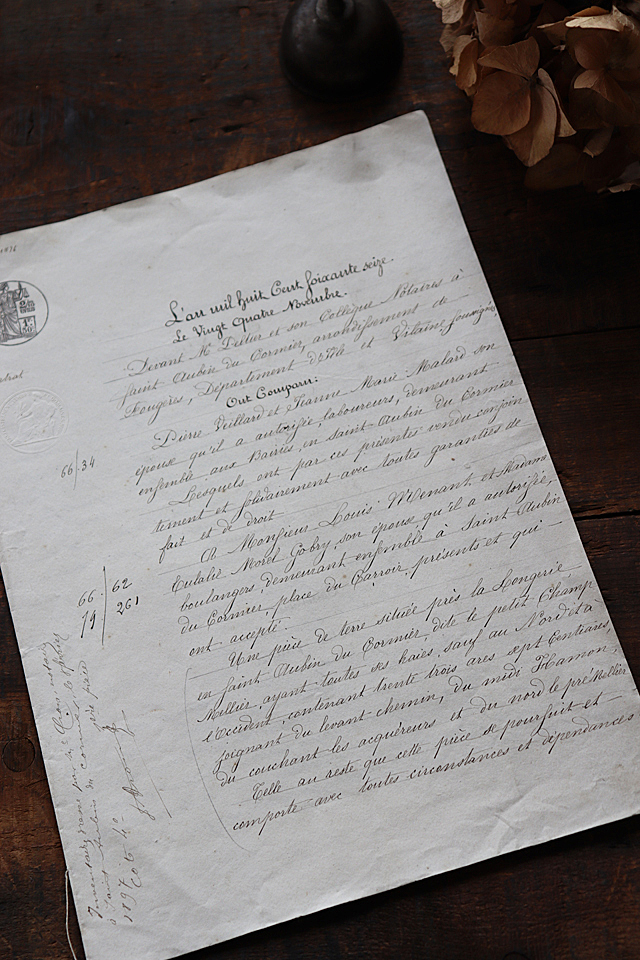 L'an mil huit Cent soixante seize.
Le Vingt Quatre Novembre.
Devant Me et son Collègue Notaires à
saint Aubin du Cormier, arrondissement de
Fougères, Département d'Ille et Vilaine soussignés
Ont Comparu:
Pierre Veillard et Jeanne Marie Malard son
épouse qu'il a autorisée, laboureurs, demeurant
ensemble aux Bairies, en Saint Aubin du Cormier
Lesquels ont par ces présentes vendu conjoin
tement et solidairement avec toutes garanties de
fait et de droit
A Monsieur Louis Menant et Madame
Eulalie Morel Gobry, son épouse qu'il a autorisée,
boulangers, demeurant ensemble à Saint-Aubin
du Cormier, place du Carroir, présents et qui
ont accepté.
Une pièce de terre située près la Longerie
en saint Aubin du Cormier, dite le petit Champ
Mellier, ayant toutes ses haies, sauf au Nord et à
l'Occident, contenant trente trois ares sept Centiares,
joignant du levant chemin, du midi Hamon,
du couchant les acquéreurs et du nord le pré Mellier
Telle au reste que cette pièce se poursuit et
comporte avec toutes circonstances et dépendances
66 34
66 62
19 261
Inventorié
à Saint Aubin du cormier
1897 Cote